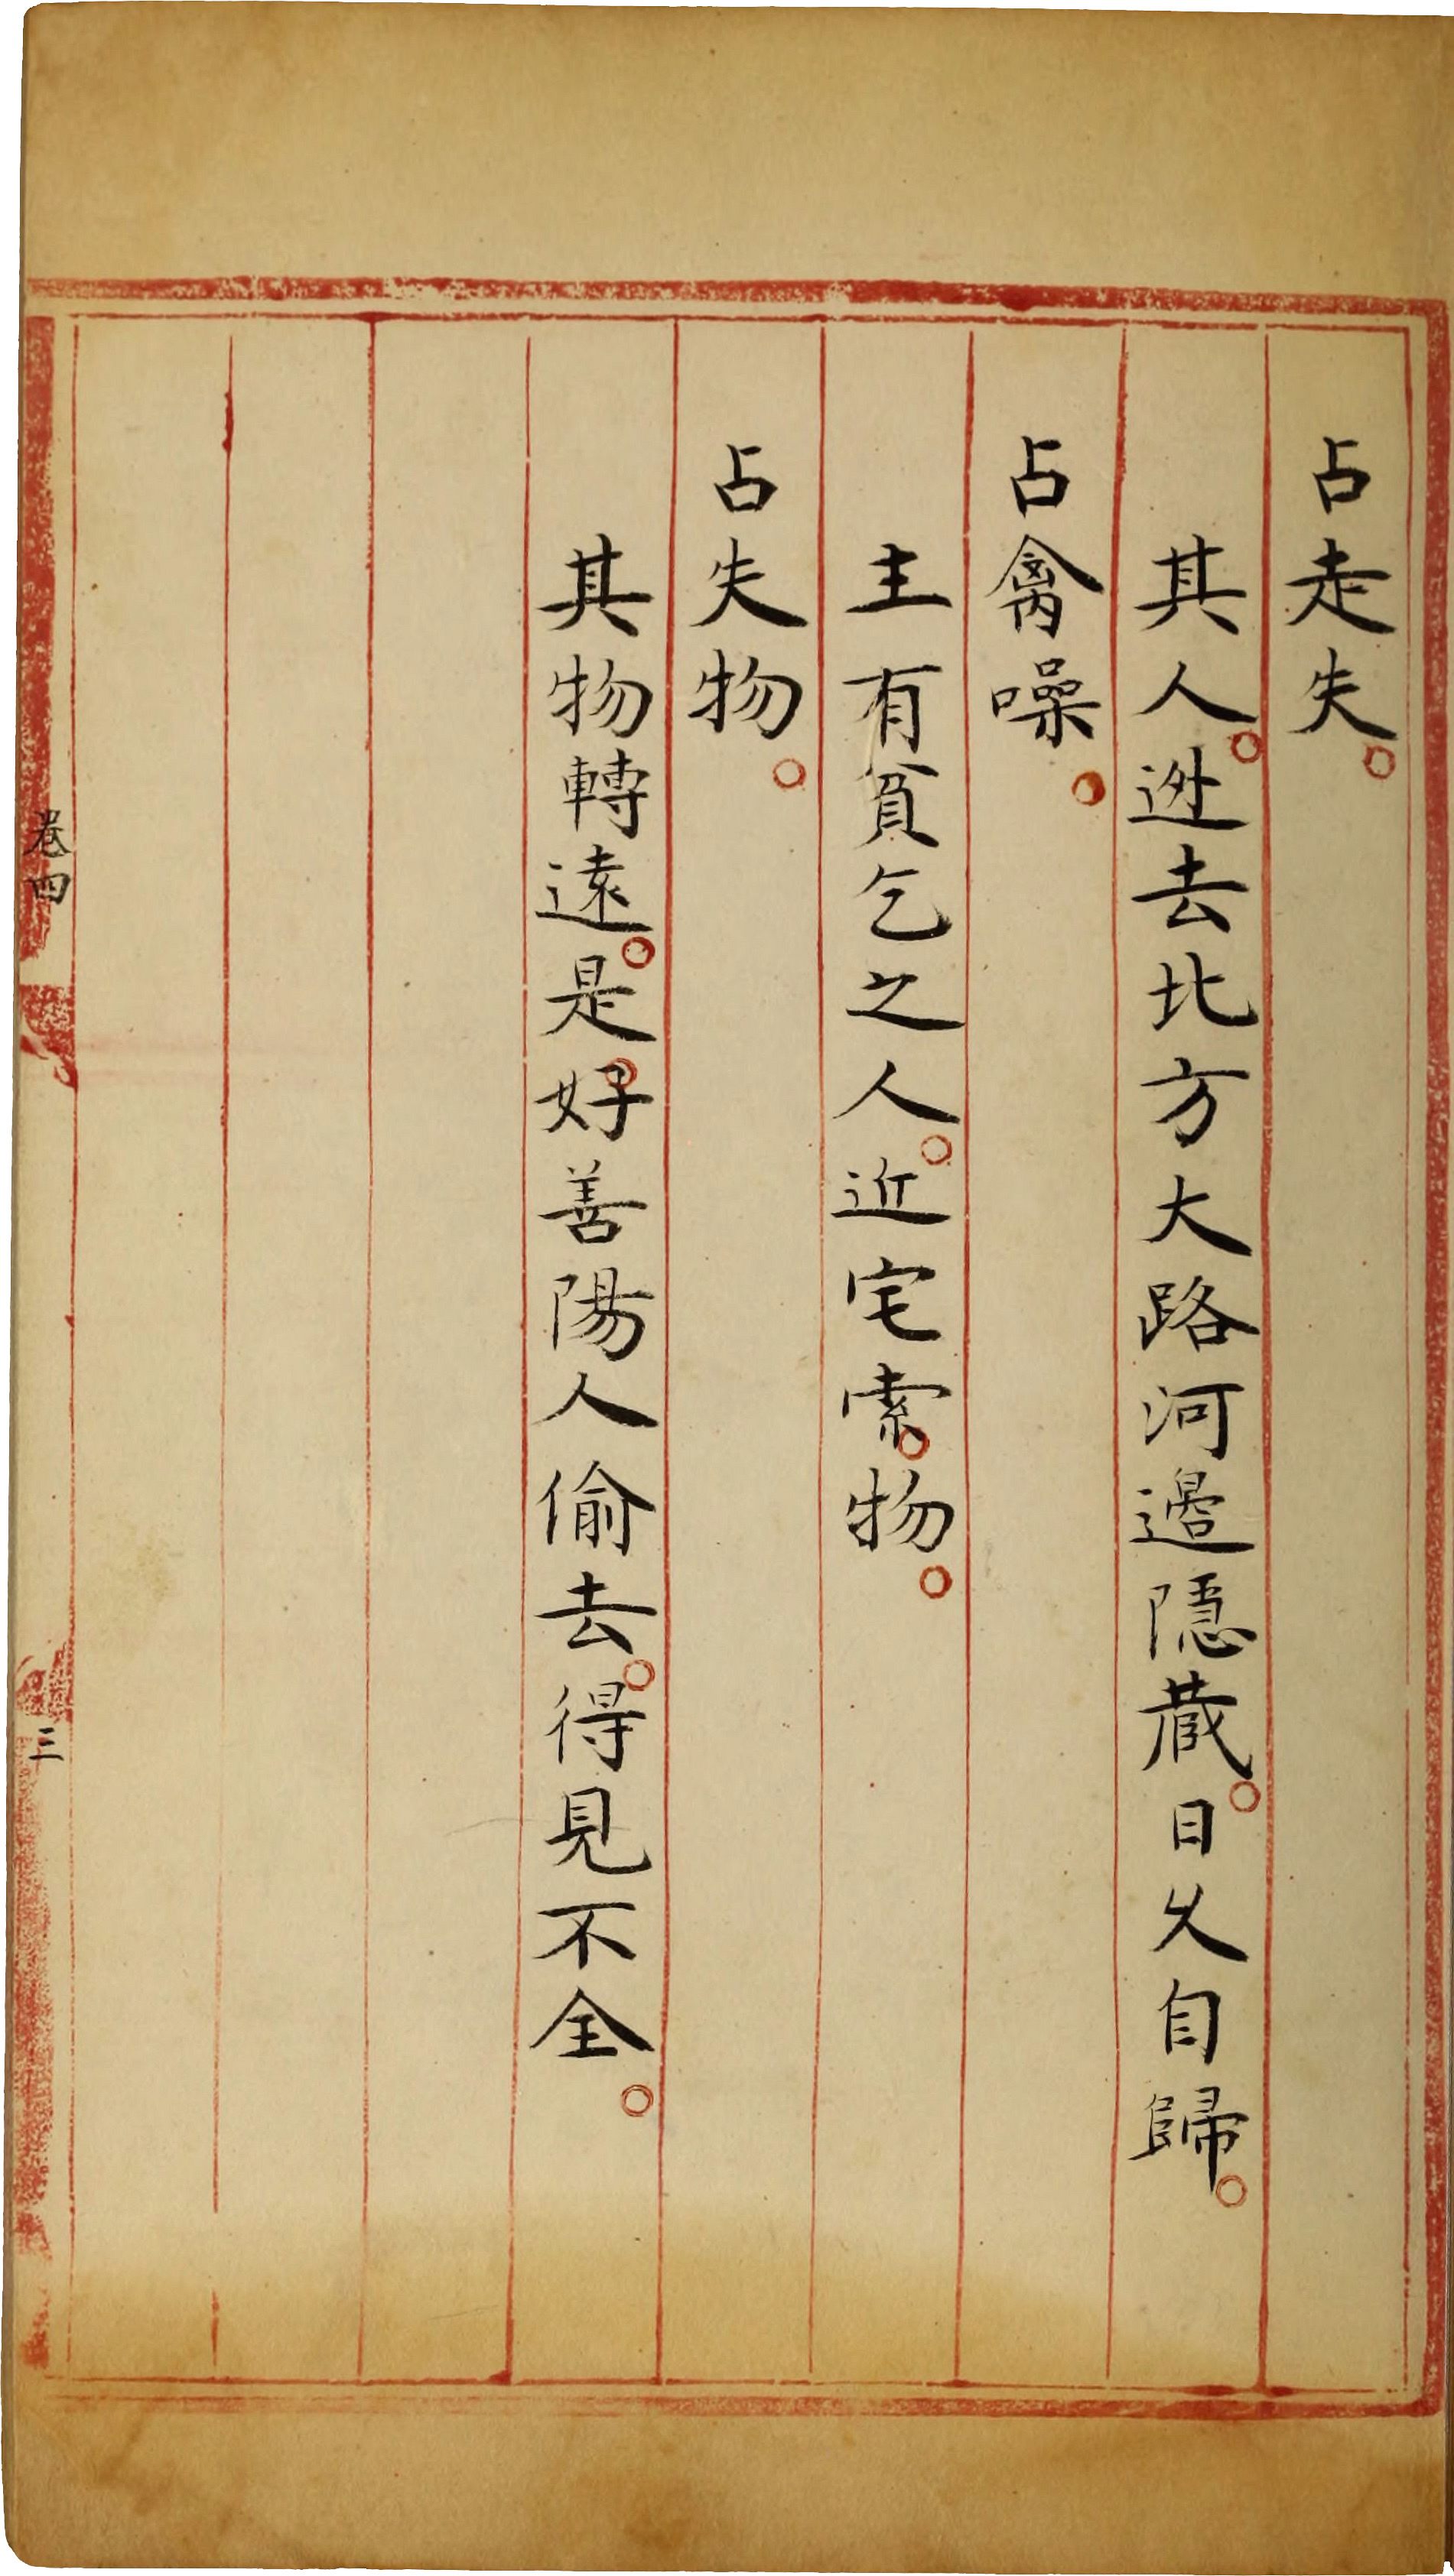 占走失。
其人。逃去北方大路河邊隱藏。日久自歸。
占禽噪。
主有貧乞之人。近宅索。物。
占失物。
其物轉遠。是。好善陽人偷去。得見不全。
卷四
三